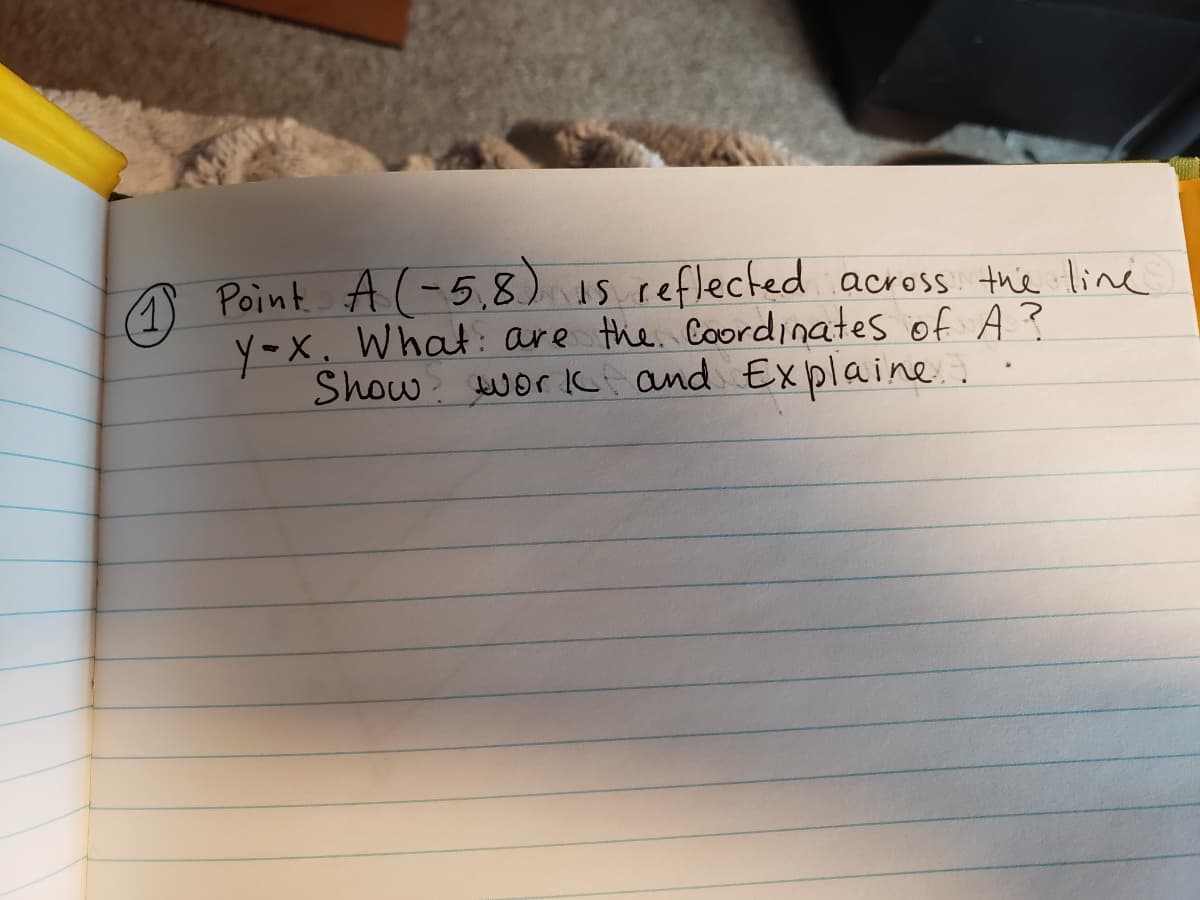 ① Point A(-5,8) is reflected across the line
y=x. What are the Coordinates of A?
Show work and Explaine.